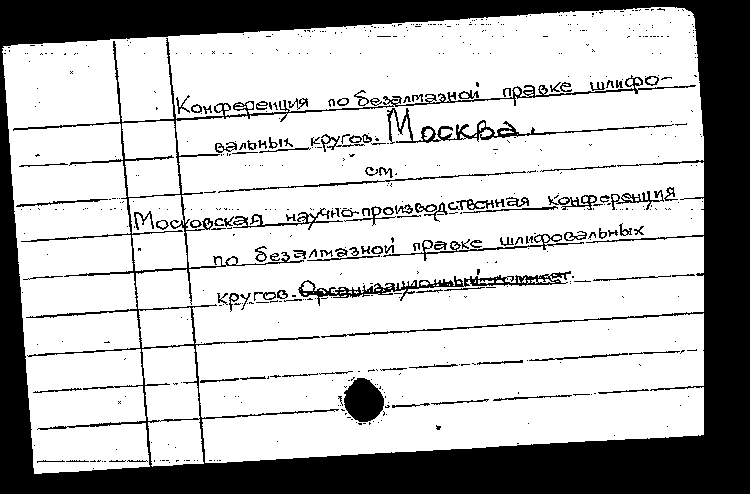 Конференция по безалмазной правке шлифо-
вальных кругов. Москва.
см.
Московская научно-производственная конференция
по безалмазной правке шлифовальных
кругов. Организационный комитет.